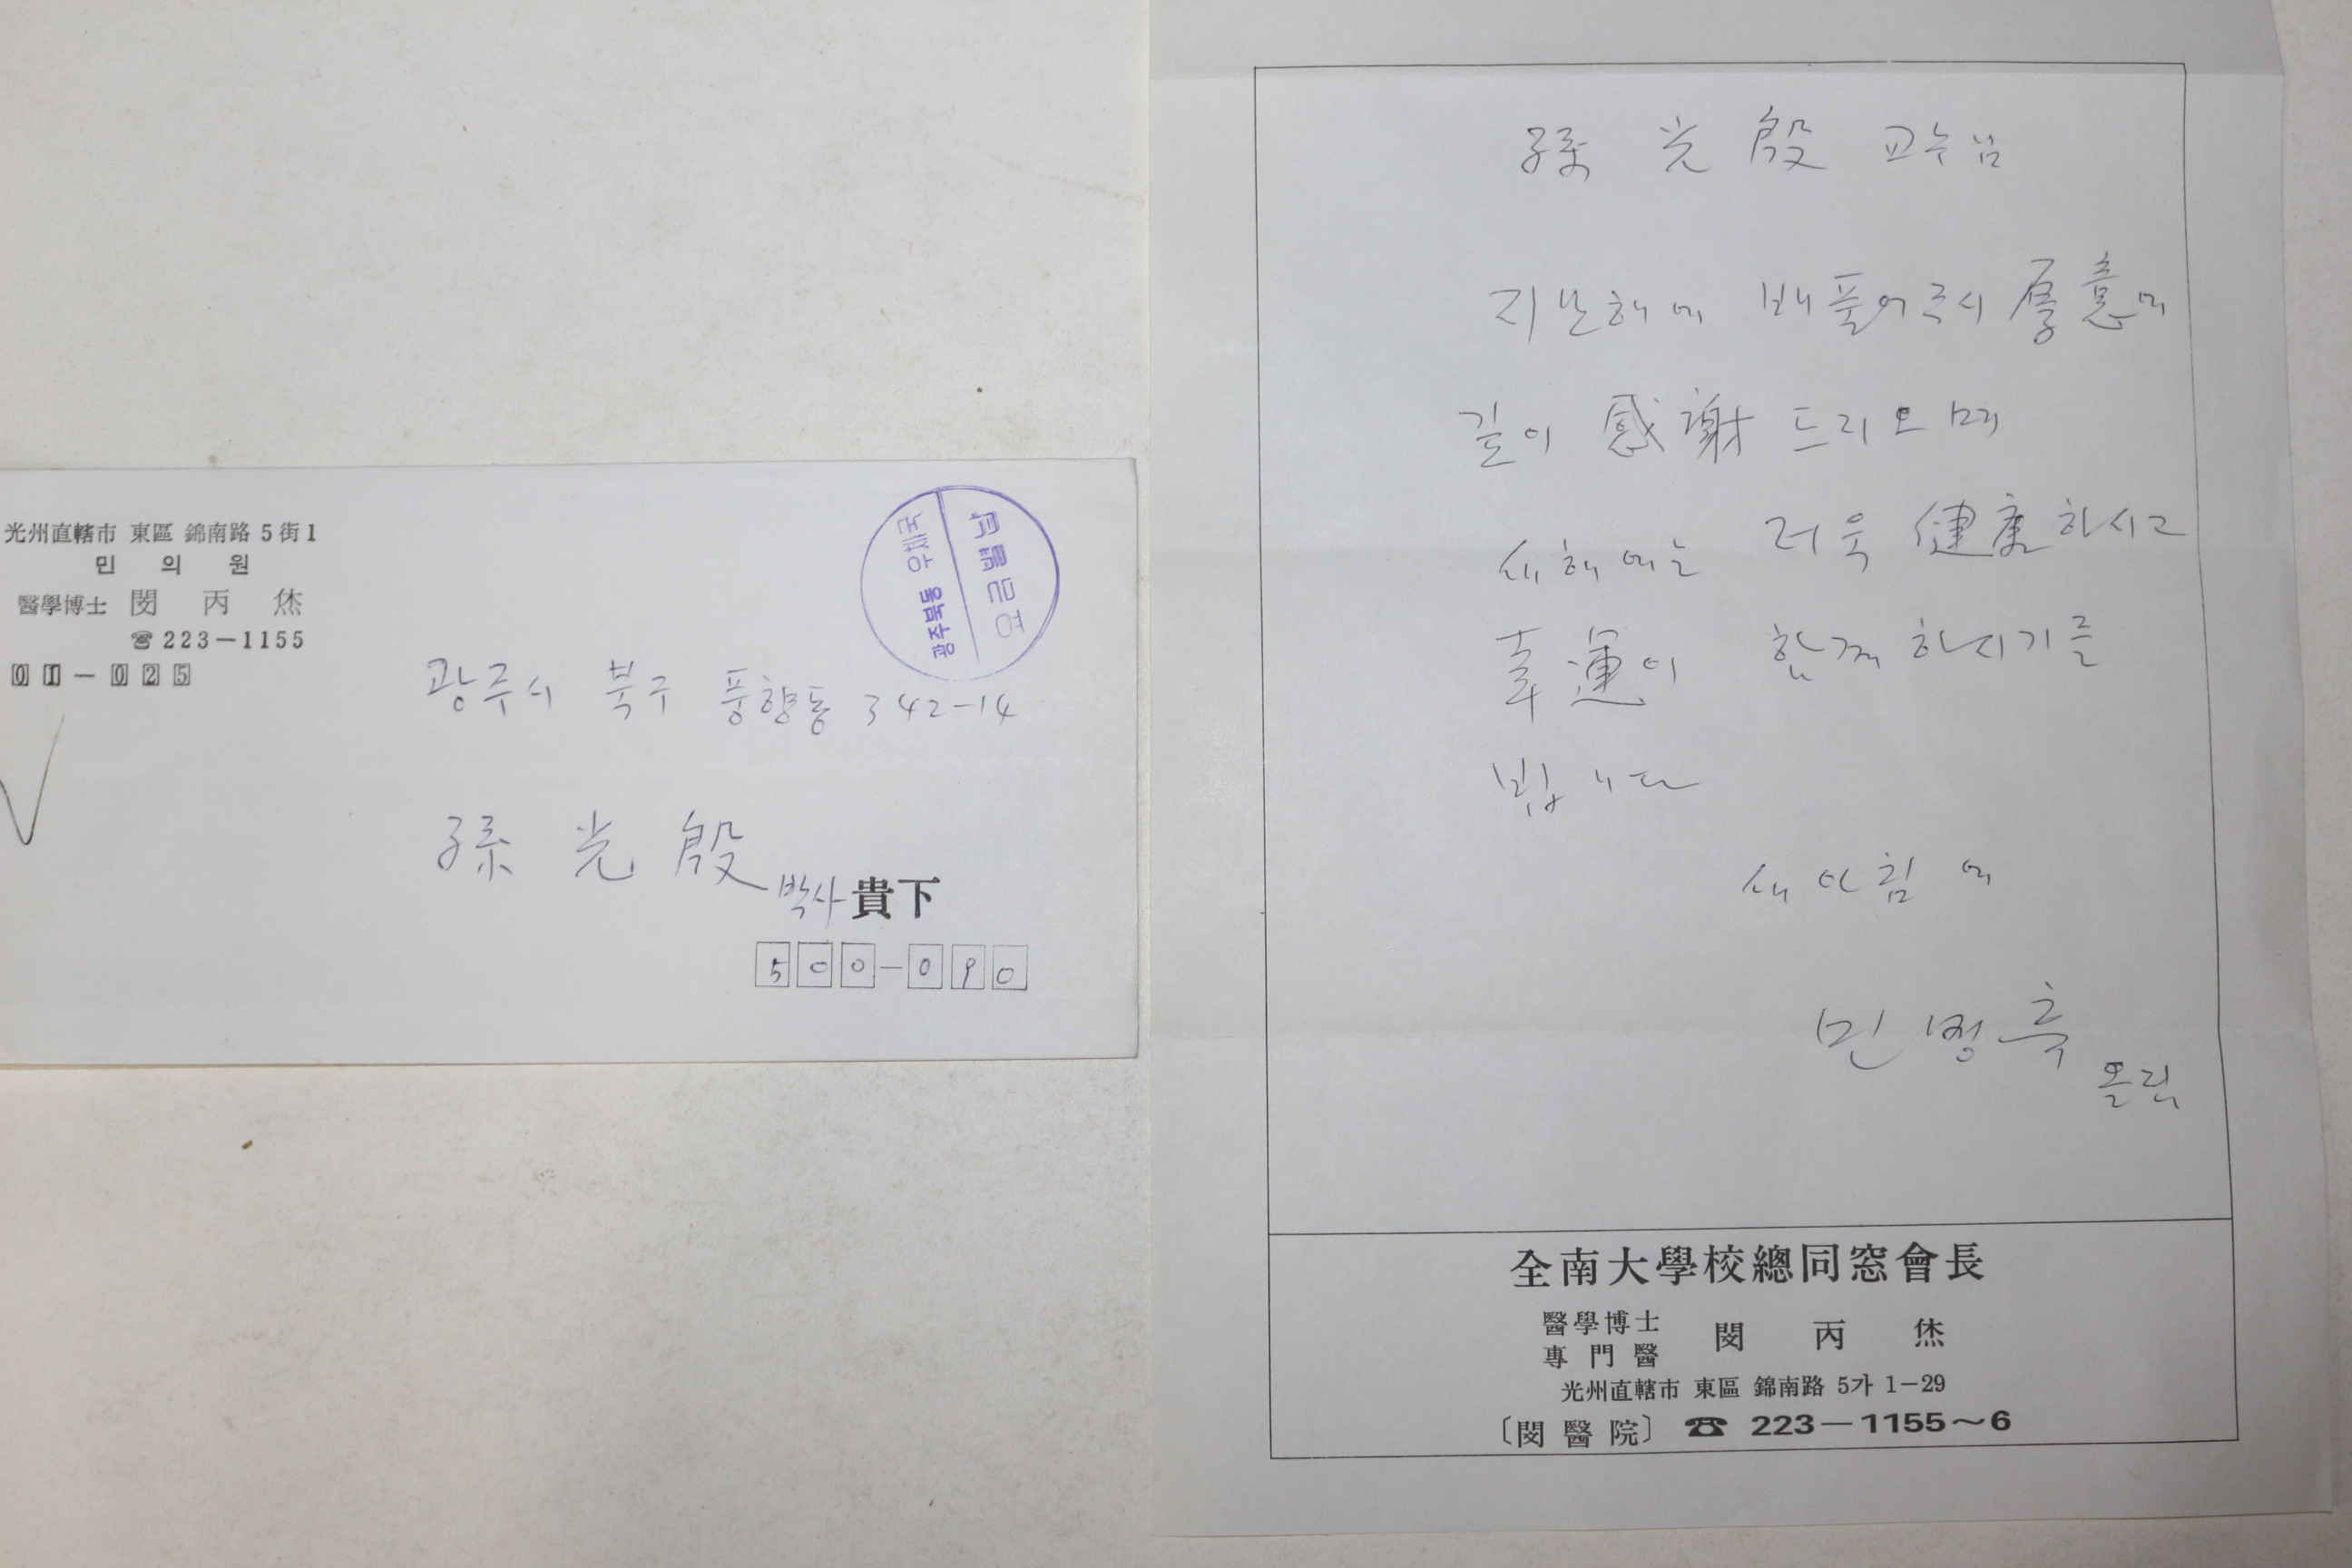 光州直轄市 東區 錦南路 5街1
민 의 원
醫學博士 閔 丙 烋
☎ 223-1155
01-025
광주북동 우체국
요금별납
광주시 북구 풍향동 342-14
孫 光 殷 박사 貴下
500-090
孫 光 殷 교수님
지난해에 베풀어주신 厚意에
깊이 感謝 드리오며
새해에는 더욱 健康하시고
幸運이 함께 하시기를
빕니다
새아침에
민병휴
올림
全南大學校總同窓會長
醫學博士
專門醫
閔 丙 烋
光州直轄市 東區 錦南路 5가 1-29
〔閔醫院〕 ☎ 223-1155~6